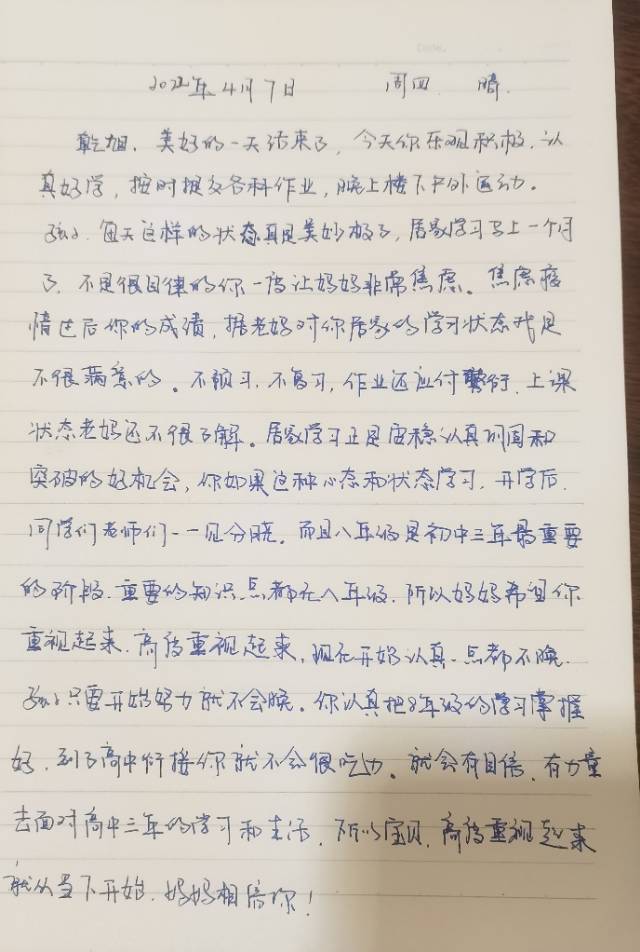 2022年4月7日 周四 晴.
乾旭、美好的一天结束了, 今天你乐观积极、认
真好学, 按时提交各科作业, 晚上楼下户外运动。
孩子、每天这样的状态真是美妙极了, 居家学习马上一个月
了, 不是很自律的你一度让妈妈非常焦虑。焦虑疫
情过后你的成绩, 据老妈对你居家的学习状态我是
不很满意的。不预习、不复习, 作业还应付 上课
状态老妈还不很了解。居家学习正是安稳认真巩固和
突破的好机会, 你如果这种心态和状态学习, 开学后,
同学们老师们一一见分晓。而且八年级是初中三年最重要
的阶段、重要的知识点都在八年级, 所以妈妈希望你
重视起来、高度重视起来, 现在开始认真一点都不晚.
孩子只要开始努力就不会晚。你认真把8年级的学习掌握
好、到了高中衔接你就不会很吃力。就会有自信、有力量
去面对高中三年的学习和生活, 所以宝贝、高度重视起来
就从当下开始、妈妈相信你!